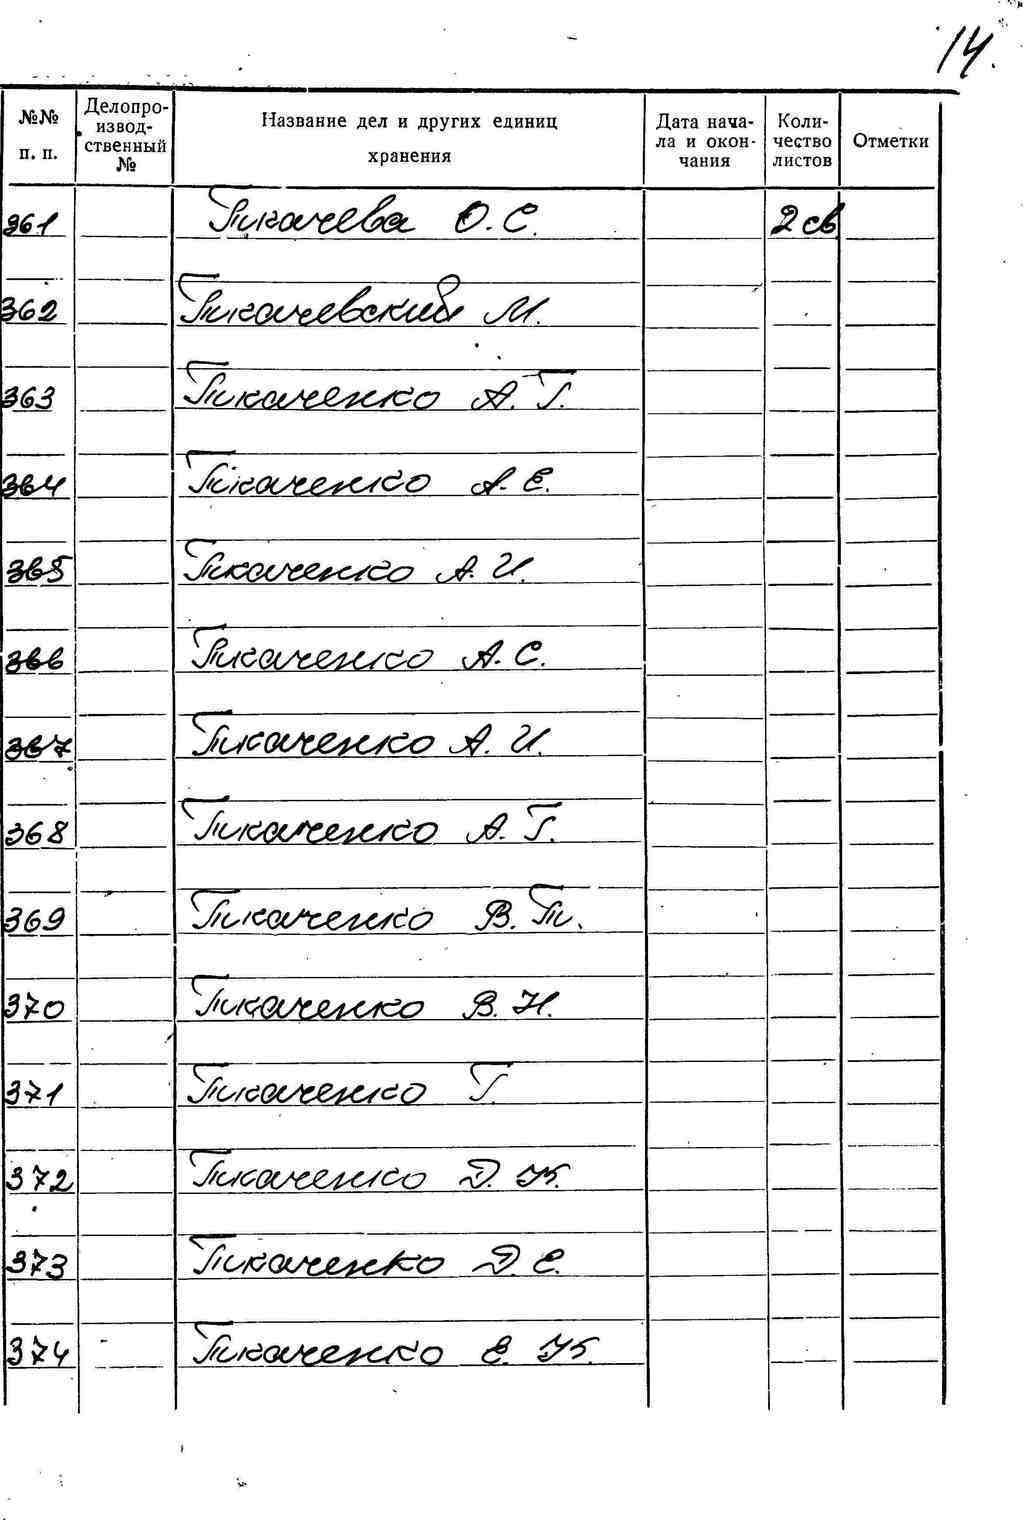 14.
№№ п. п. Делопроизводственный № Название дел и других единиц хранения Дата начала и окончания Количество листов Отметки
361 Ткачева О. С. 2 св
362 Ткачевский М.
363 Ткаченко А. Г.
364 Ткаченко А. Е.
365 Ткаченко А. И.
366 Ткаченко А. С.
367 Ткаченко А. И.
368 Ткаченко А. Г.
369 Ткаченко В. Т.
370 Ткаченко В. Н.
371 Ткаченко Г.
372 Ткаченко Д. К.
373 Ткаченко Д. Е.
374 Ткаченко Е. К.